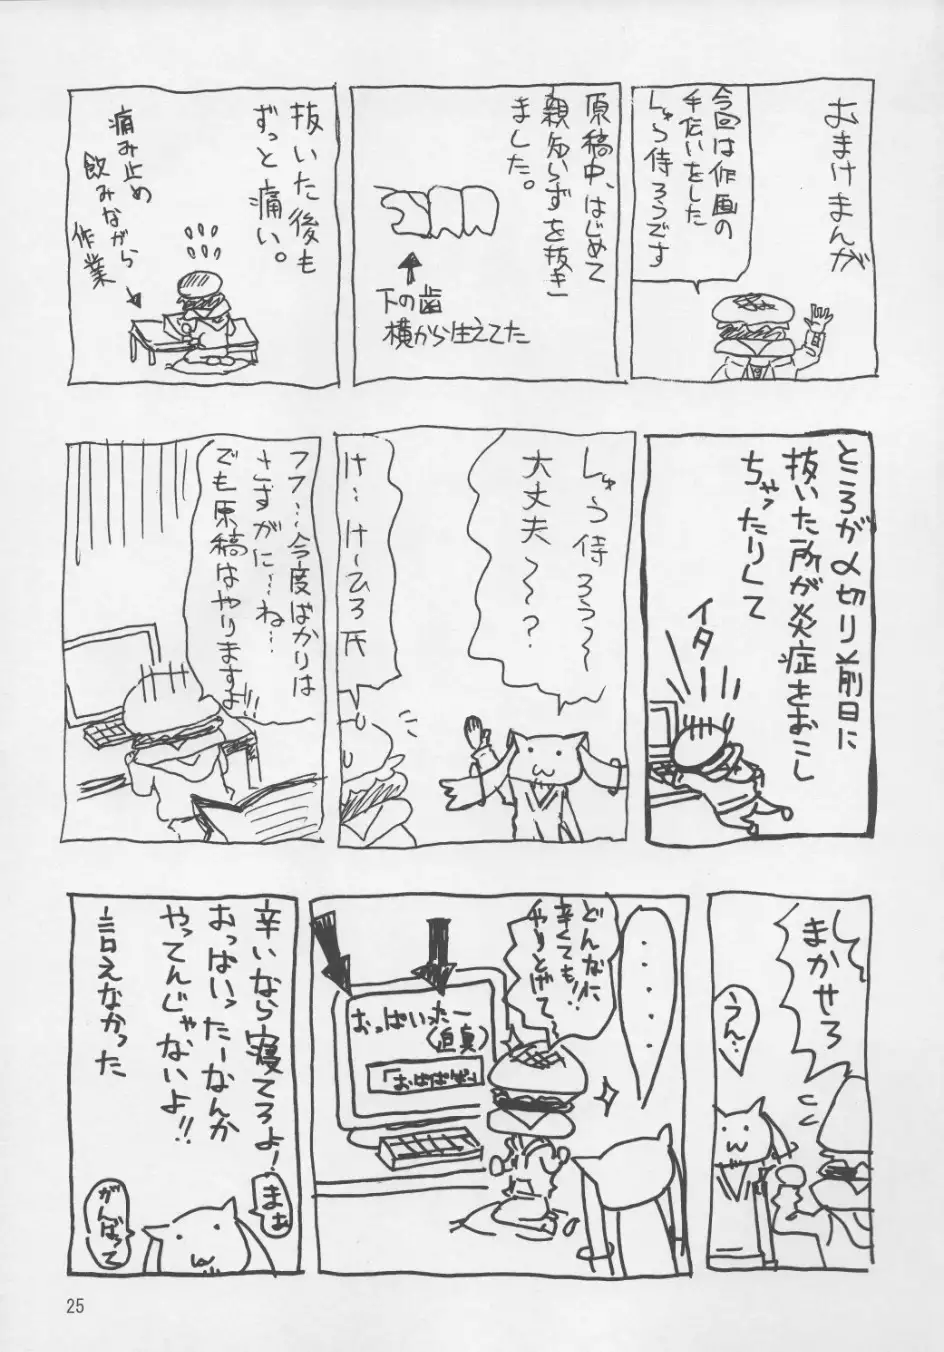 おまけまんが
今回は作画の
手伝いをした
しゅう侍ろうです
原稿中、はじめて
親知らずを抜き
ました。
下の歯
横から生えてた
抜いた後も
ずっと痛い。
痛み止め
飲みながら
作業
ところが〆切り前日に
抜いた所が炎症をおこし
ちゃったりして
イター
しゅう侍ろう〜
大丈夫〜〜?
け…けーひろ氏
フフ…今度ばかりは
さすがに…ね…
でも原稿はやりますよ!!
し…
まかせろ
うん…
・・・・・
どんなに
辛くても!!
やりとげて
おっぱいったー
(迫真)
辛いなら寝てろよ!
おっぱいったーなんか
やってんじゃないよ!!
言えなかった
まぁ
がんばって
25